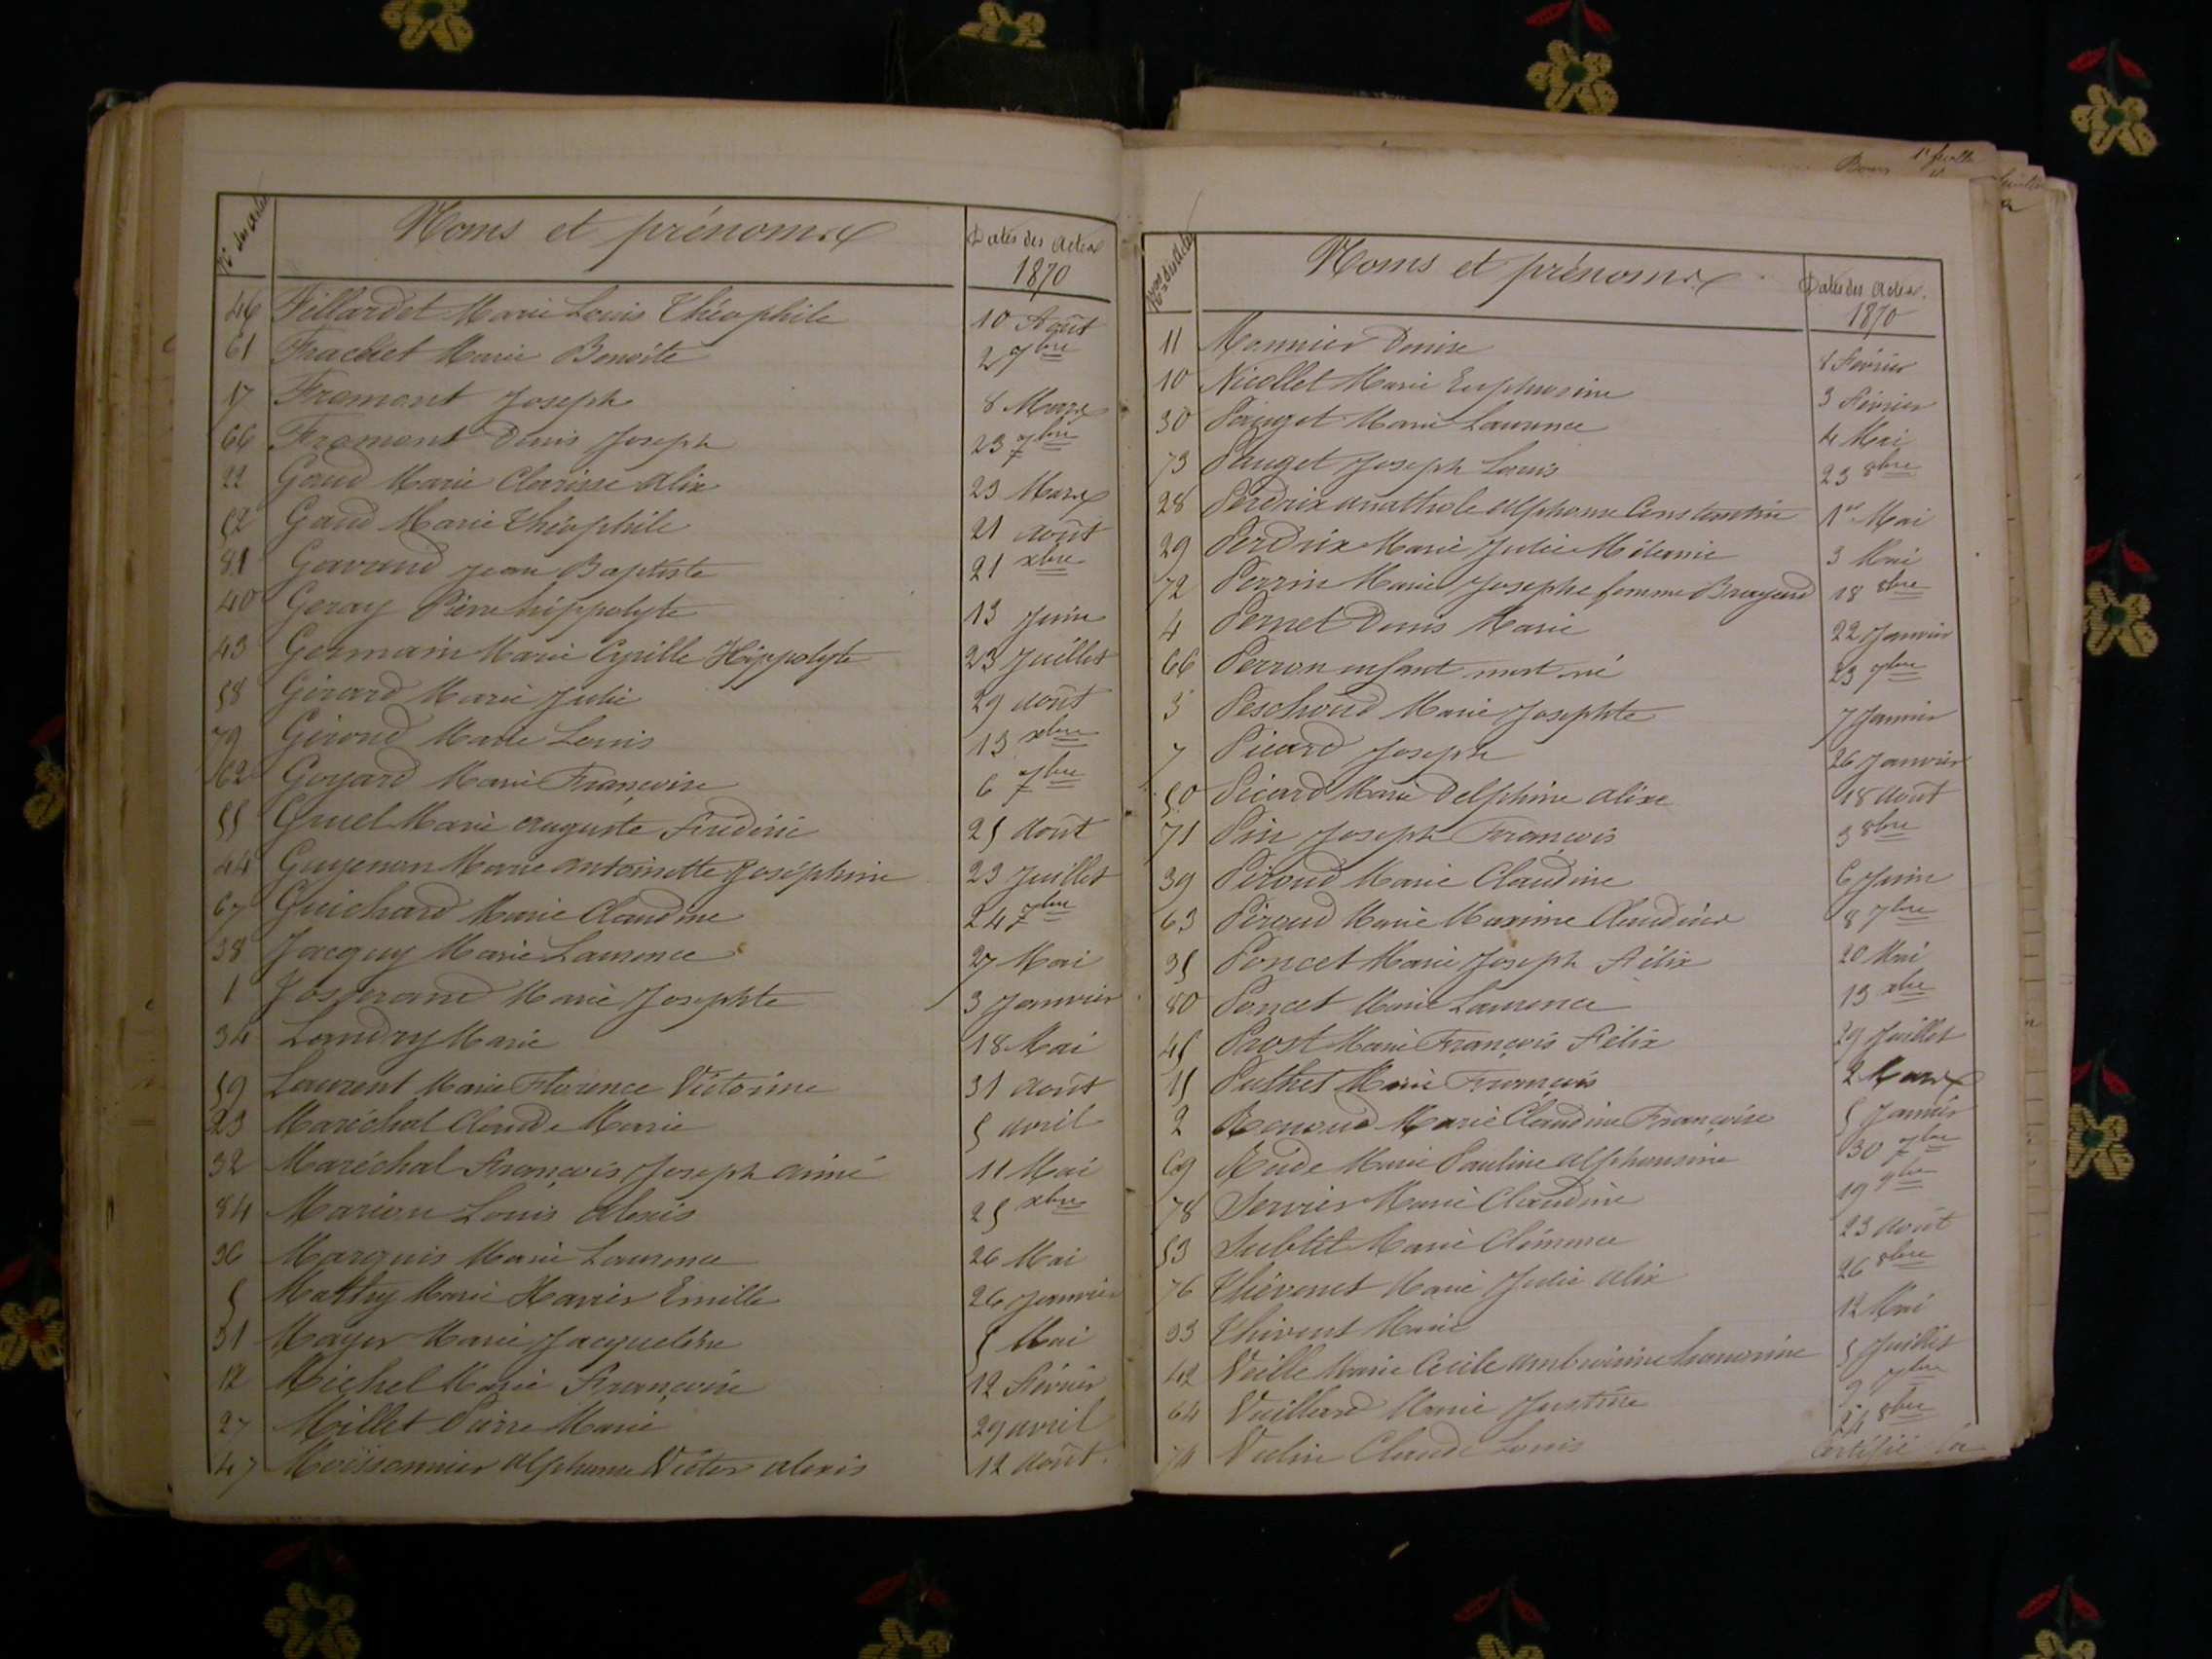 Nos des actes Noms et prénoms Dates des Actes
1870
46 Fillardet Marie Louis Théophile 10 Août
61 Frachet Marie Benoite 2 7bre
17 Fromont Joseph 8 Mars
66 Fromont Denis Joseph 23 7bre
22 Gaud Marie Clarisse alix 23 Mars
52 Gaud Marie Théophile 21 août
81 Gavand jean Baptiste 21 xbre
40 Geray Pierre hippolyte 13 Juin
43 Germain Marie Cyrille Hippolyte 23 Juillet
58 Girard Marie Julie 29 août
79 Giroud Marie Louis 13 xbre
62 Goyard Marie Françoise 6 7bre
55 Gruel Marie auguste Frédéric 25 août
44 Guyenon Marie antoinette Joséphine 23 Juillet
67 Guichard Marie Claudine 24 7bre
38 Jacquy Marie Laurence 27 Mai
1 Josserand Marie Josephte 3 Janvier
34 Landry Marie 18 Mai
59 Laurent Marie Florence Victorine 31 août
23 Maréchal Claude Marie 5 avril
32 Maréchal François Joseph aimé 11 Mai
84 Marion Louis alexis 25 xbre
36 Marquis Marie Laurence 26 Mai
5 Mathy Marie Xavier Emille 26 Janvier
31 Mayer Marie Jacqueline 5 Mai
12 Michel Marie Françoise 12 Février
27 Millet Pierre Marie 29 avril
47 Moissonnier alphonse Victor alexis 12 août
Nos des actes Noms et prénoms Dates des Actes
1870
11 Monnier Denise 8 Février
10 Nicollet Marie Euphrosine 3 Février
30 Pauget Marie Laurence 4 Mai
73 Pauget Joseph Louis 23 8bre
28 Perdrix anathole alphonse Constantin 1er Mai
29 Perdrix Marie Julie Mélanie 3 Mai
72 Perrin Marie Josephe femme 18 8bre
4 Pernet Denis Marie 22 Janvier
66 Perron enfant mort né 23 7bre
3 Peschoud Marie Josephte 7 Janvier
7 Picard Joseph 26 Janvier
50 Picard Marie Delphine alixe 18 août
71 Pin Joseph François 3 8bre
39 Piroud Marie Claudine 6 Juin
63 Piroud Marie Maxime Claudius 8 7bre
35 Poncet Marie Joseph Félix 20 Mai
80 Poncet Marie Laurence 13 xbre
45 Prost Marie François Félix 29 Juillet
15 Puthet Marie François 2 Mars
2 Renoud Marie Claudine Françoise 5 Janvier
69 Rude Marie Pauline alphonsine 30 7bre
78 Servier Marie Claudine 19 9bre
53 Subtil Marie Clémence 23 août
76 Thévenet Marie Julie alix 26 8bre
33 Thivent Marie 12 Mai
42 Vieille Marie Cecile ambroisine 5 Juillet
64 Vuillard Marie Justine 9 7bre
74 Vulin Claude Louis 24 8bre
Certifié